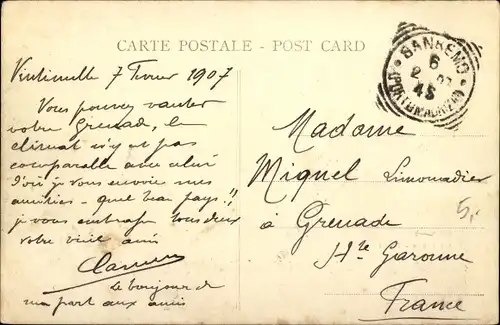 CARTE POSTALE - POST CARD
SANREMO
6
2 07
4S
(PORTO MAURIZIO)
Vintimille 7 Fevrier 1907
Vous pouvez vanter
votre Grenade, le
climat n'y est pas
comparable avec celui
D'où je vous envoie mes
amitiés - quel beau pays!!
je vous embrasse tous deux
votre vieil ami
Le bonjour de
ma part aux amis
Madame
Miquel Limonadier
à Grenade
Hte Garonne
France
5,-